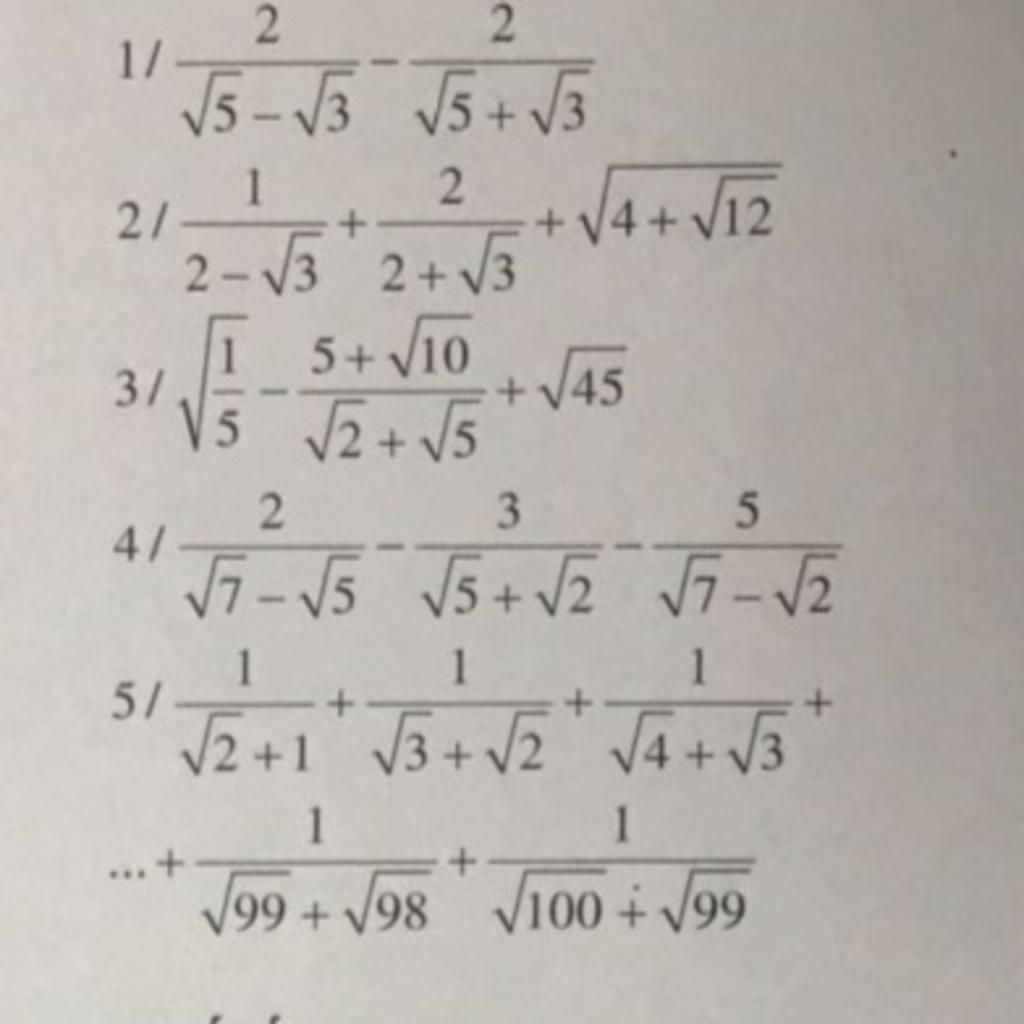 1/ \frac{2}{\sqrt{5}-\sqrt{3}} - \frac{2}{\sqrt{5}+\sqrt{3}}
2/ \frac{1}{2-\sqrt{3}} + \frac{2}{2+\sqrt{3}} + \sqrt{4+\sqrt{12}}
3/ \sqrt{\frac{1}{5}} - \frac{5+\sqrt{10}}{\sqrt{2}+\sqrt{5}} + \sqrt{45}
4/ \frac{2}{\sqrt{7}-\sqrt{5}} - \frac{3}{\sqrt{5}+\sqrt{2}} - \frac{5}{\sqrt{7}-\sqrt{2}}
5/ \frac{1}{\sqrt{2}+1} + \frac{1}{\sqrt{3}+\sqrt{2}} + \frac{1}{\sqrt{4}+\sqrt{3}} +
...+ \frac{1}{\sqrt{99}+\sqrt{98}} + \frac{1}{\sqrt{100}+\sqrt{99}}